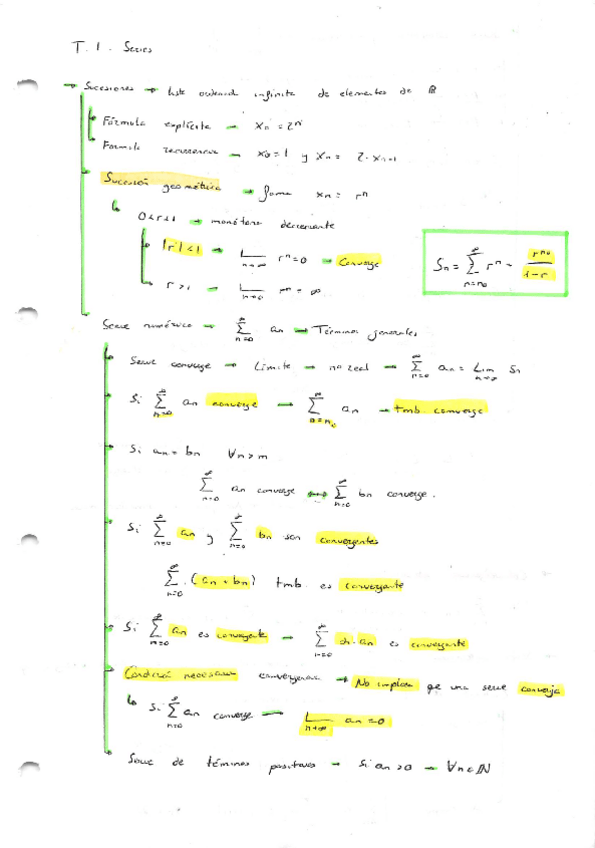 T.1. Series
→ Sucesiones → lista ordenada infinita de elementos de ℝ
Fórmula explícita → xn = 2^n
Formula recurrencia → x0 = 1 y xn = 2·xn-1
Sucesión geométrica → forma xn = r^n
0<r<1 → monótona decreciente
|r|<1 → L n→∞ r^n = 0 → Converge
r>1 → L n→∞ r^n = ∞
Sn = ∑ n=n0 ∞ r^n = r^n0 / 1-r
Serie numérica → ∑ n=0 ∞ an → Términos generales
Serie converge → Límite → no real → ∑ n=0 ∞ an = Lim n→∞ Sn
Si ∑ n=0 ∞ an converge → ∑ n=n0 ∞ an → tmb. converge
Si an = bn ∀n>m
∑ n=0 ∞ an converge ↔ ∑ n=0 ∞ bn converge.
Si ∑ n=0 ∞ an y ∑ n=0 ∞ bn son convergentes
∑ n=0 ∞ (an+bn) tmb. es convergente
Si ∑ n=0 ∞ an es convergente → ∑ n=0 ∞ an es convergente
Condición necesaria convergencia → No implica qe una serie converja
Si ∑ n=0 ∞ an converge → L n→∞ an = 0
Serie de términos positivos → Si an>0 → ∀n∈ℕ